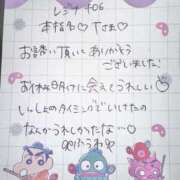 レジーナ406
本指名♡Tさま♡
お誘い頂いて ありがとう
ございました!
お休み明けに会えてうれしい♡
いっしょのタイミングでいけたの
なんかうれしかったな…♡